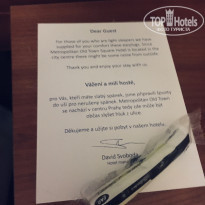 TopHotels
Dear Guest
For those of you who are light sleepers we have
supplied for your comfort these earplugs. Since
Metropolitan Old Town Square Hotel is located in the
city centre there might be some noise from outside.
Thank you and enjoy your stay with us
Vážení a milí hosté,
pro Vás, kteří máte slabý spánek, jsme připravili špunty
do uší pro nerušený spánek. Metropolitan Old Town
se nachází v centru Prahy tedy zde může být
občas slyšet hluk z ulice.
Děkujeme a užijte si pobyt v našem hotelu.
David Svoboda